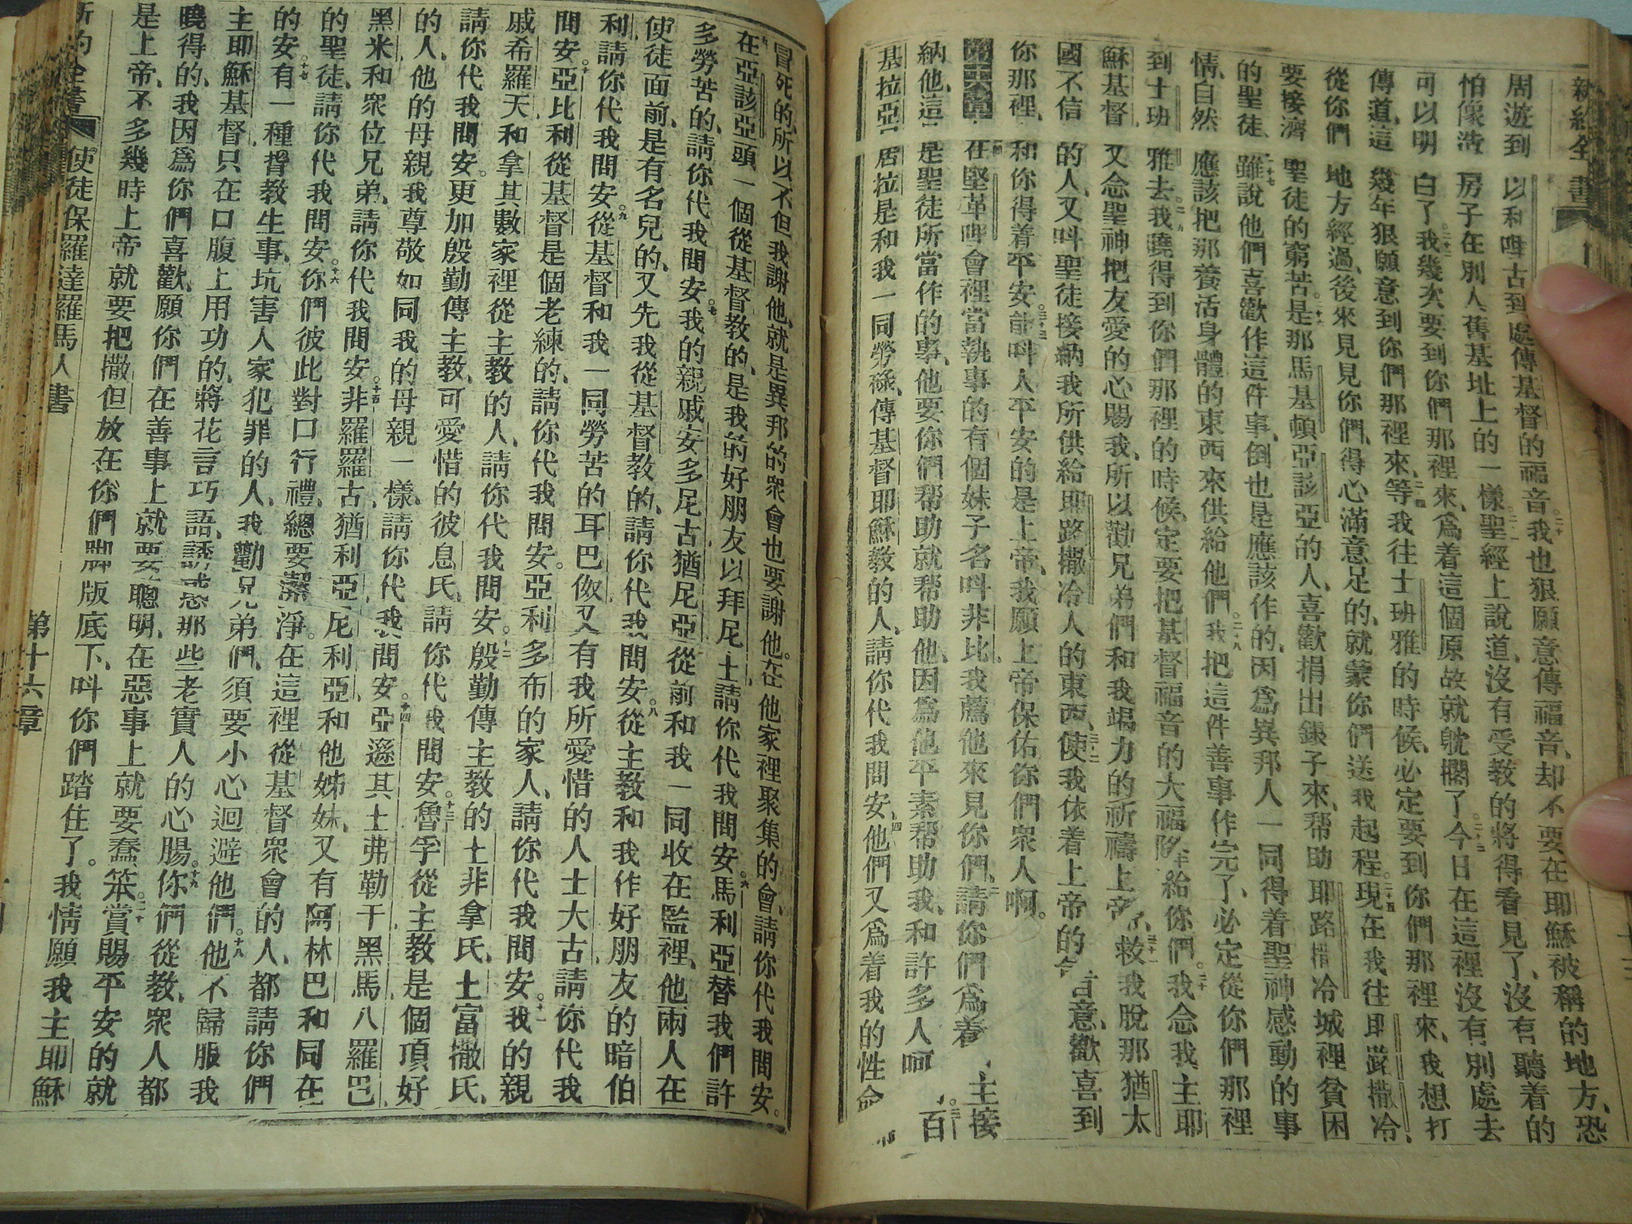 新約全書
周遊到以利哩古到處傳基督的福音我也狠願意傳福音却不要在耶穌被稱的地方恐
怕像造房子在別人舊基址上的一樣聖經上說道沒有受教的將得看見了沒有聽着的
可以明白了我幾次要到你們那裡來爲着這個原故就躭擱了今日在這裡沒有別處去
傳道這幾年狠願意到你們那裡來等我往士班雅的時候必定要到你們那裡來我想打
從你們地方經過後來見見你們得心滿意足的就蒙你們送我起程現在我往耶路撒冷
要接濟聖徒的窮苦是那馬基頓亞該亞的人喜歡捐出錢子來帮助耶路撒冷城裡貧困
的聖徒雖說他們喜歡作這件事倒也是應該作的因爲異邦人一同得着聖神感動的事
情自然應該把那養活身體的東西來供給他們我把這件善事作完了必定從你們那裡
到士班雅去我曉得到你們那裡的時候定要把基督福音的大福降給你們我念我主耶
穌基督又念聖神把友愛的心賜我所以勸兄弟們和我竭力的祈禱上帝救我脫那猶太
國不信的人又呌聖徒接納我所供給耶路撒冷人的東西使我依着上帝的旨意歡喜到
你那裡和你得着平安能呌人平安的是上帝我願上帝保佑你們衆人啊
在堅革哩會裡當執事的有個妹子名呌非比我薦他來見你們請你們爲着主接
納他這是聖徒所當作的事他要你們帮助就帮助他因爲他平素帮助我和許多人呵百
基拉亞居拉是和我一同勞祿傳基督耶穌教的人請你代我問安他們又爲着我的性命
冒死的所以不但我謝他就是異邦的衆會也要謝他在他家裡聚集的會請你代我問安
在亞該亞頭一個從基督教的是我的好朋友以拜尼土請你代我問安馬利亞替我們許
多勞苦的請你代我問安我的親戚安多尼古猶尼亞從前和我一同收在監裡他兩人在
使徒面前是有名兒的又先我從基督教的請你代我問安從主教和我作好朋友的暗伯
利請你代我問安從基督和我一同勞苦的耳巴伮又有我所愛惜的人士大古請你代我
問安亞比利從基督是個老練的請你代我問安亞利多布的家人請你代我問安我的親
戚希羅天和拿其數家裡從主教的人請你代我問安殷勤傳主教的土非拿氏土富撒氏
請你代我問安更加殷勤傳主教可愛惜的彼息氏請你代我問安魯孚從主教是個頂好
的人他的母親我尊敬如同我的母親一樣請你代我問安亞遜其土弗勒干黑馬八羅巴
黑米和衆位兄弟請你代我問安非羅羅古猶利亞尼利亞和他姊妹又有阿林巴和同在
的聖徒請你代我問安你們彼此對口行禮總要潔淨在這裡從基督衆會的人都請你們
的安有一種撐教生事坑害人家犯罪的人我勸兄弟們須要小心迴避他們他不歸服我
主耶穌基督只在口腹上用功的將花言巧語誘惑那些老實人的心腸你們從教衆人都
曉得的我因爲你們喜歡願你們在善事上就要聰明在惡事上就要蠢笨賞賜平安的就
是上帝不多幾時上帝就要把撒但放在你們脚版底下呌你們踏住了我情願我主耶穌
新約全書 使徒保羅達羅馬人書 第十六章